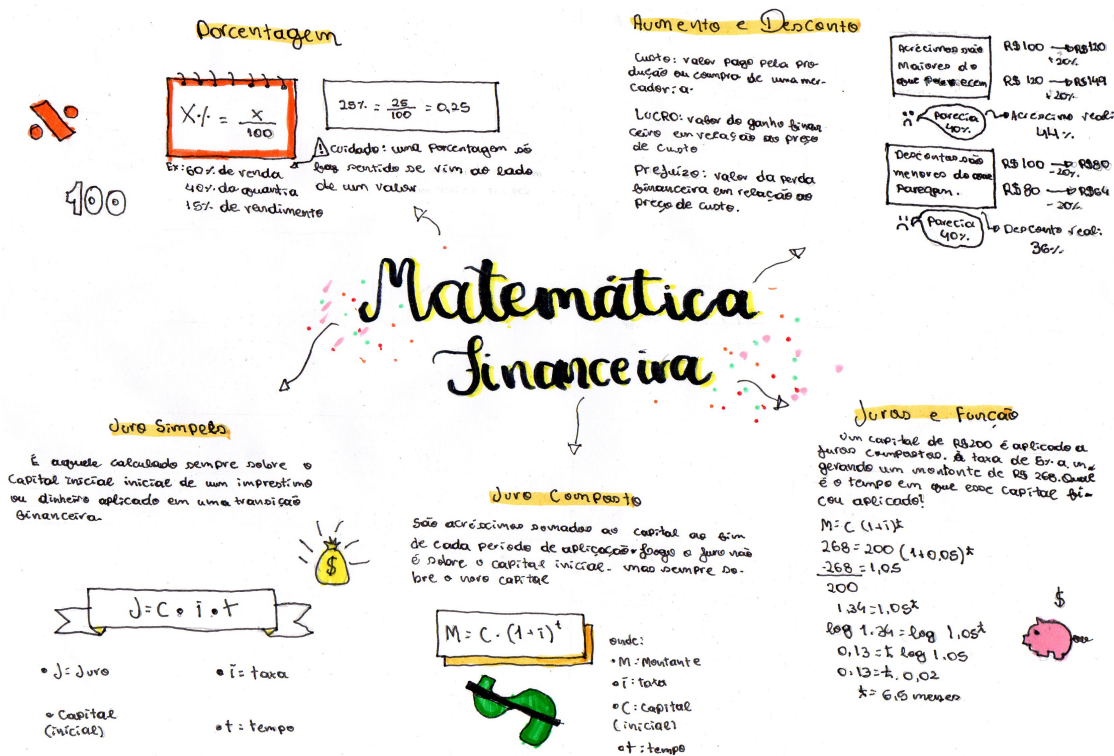 Porcentagem
X% = x/100
25% = 25/100 = 0,25
Cuidado: uma porcentagem só
faz sentido se vim ao lado
de um valor
Ex: 60% de renda
40% da quantia
15% de rendimento
100
Aumento e Desconto
Custo: valor pago pela pro-
dução ou compra de uma mer-
cadoria.
LUCRO: valor do ganho finan
ceiro em relação ao preço
de custo
Prejuízo: valor da perda
financeira em relação ao
preço de custo.
Acrécimos são
Maiores do
que parecem
R$100 → R$120
+20%
R$ 120 → R$149
+20%
Parecia
40%
Acréscimo real:
44%.
Descontos são
menores do que
Pareçam.
R$100 → R$80
-20%
R$80 → R$64
-20%
Parecia
40%.
Desconto real:
36%
Matemática
Financeira
Juro Simpels
É aquele calculado sempre sobre o
Capital inscial inicial de um imprestimo
ou dinheiro aplicado em uma transição
financeira.
$
J=C.i.t
• J= Juro
• i= taxa
• Capital
(inicial)
• t= tempo
Juro Composto
São acréscimos somados ao capital ao fim
de cada período de aplicação. Logo o juro não
é sobre o capital inicial- mas sempre so-
bre o novo capital
M= C. (1+i)^t
onde:
• M: Montante
• i: taxa
• C: Capital
(inicial)
• t: tempo
Juros e Função
Um capital de R$200 é aplicado a
juros compostos. À taxa de 5% a.m
gerando um montonte de R$ 268. Qual
é o tempo em que esse capital fi-
cou aplicado!
M= C (1+i)^t
268=200 (1+0,05)^t
-268=1,05
200
1.34=1,05^t
log 1.34= log 1,05^t
0,13=t log 1.05
0.13=t. 0,02
t= 6,5 meses
$